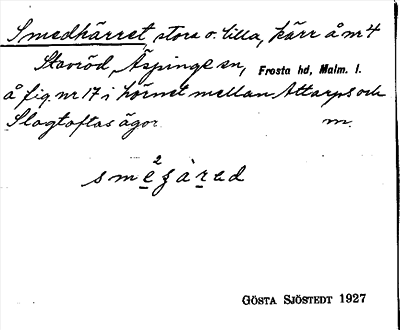 Smedkärret stora o. lilla, kärr å nr 4
Stavröd, Äspinge sn, Frosta hd, Malm. l.
å fig. nr 17 i hörnet mellan Attarps och
Slagtoftas ägor m.
GÖSTA SJÖSTEDT 1927